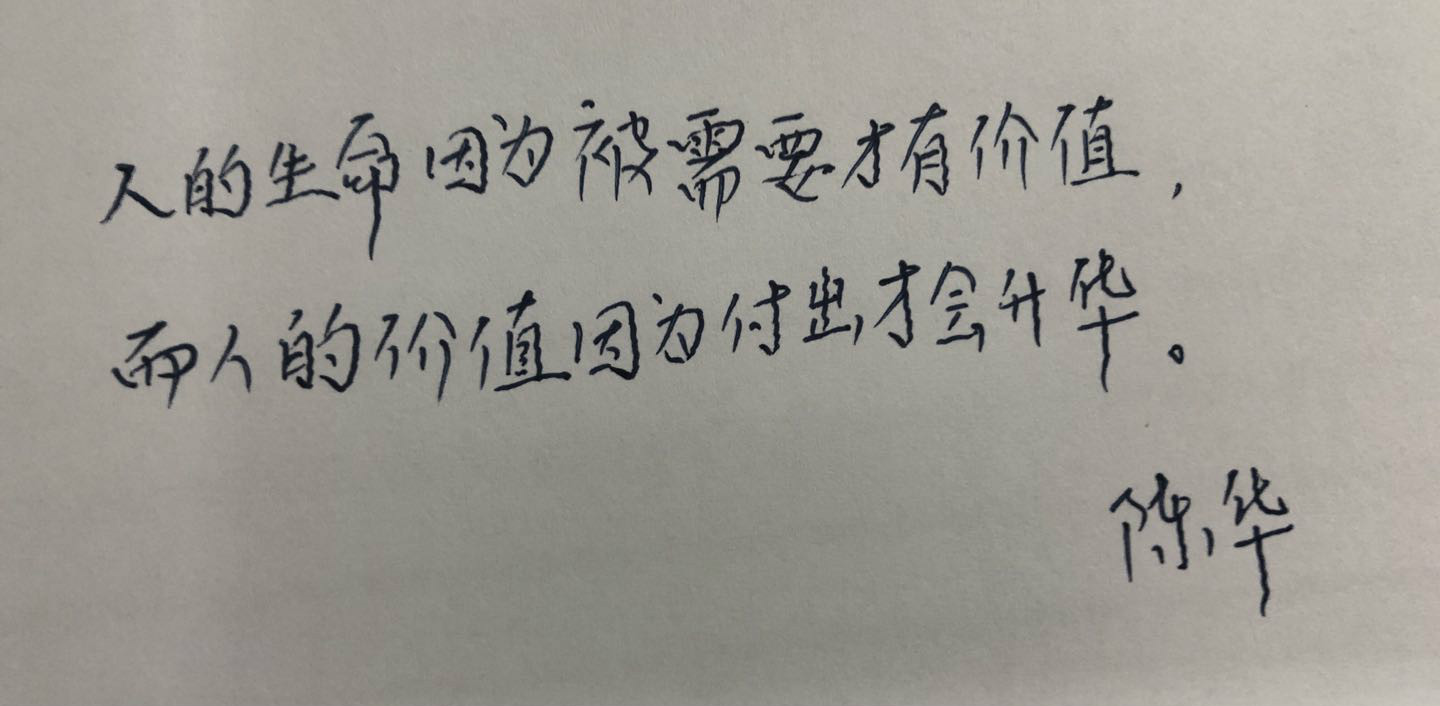 人的生命因为被需要才有价值，
而人的价值因为付出才会升华。
陈华